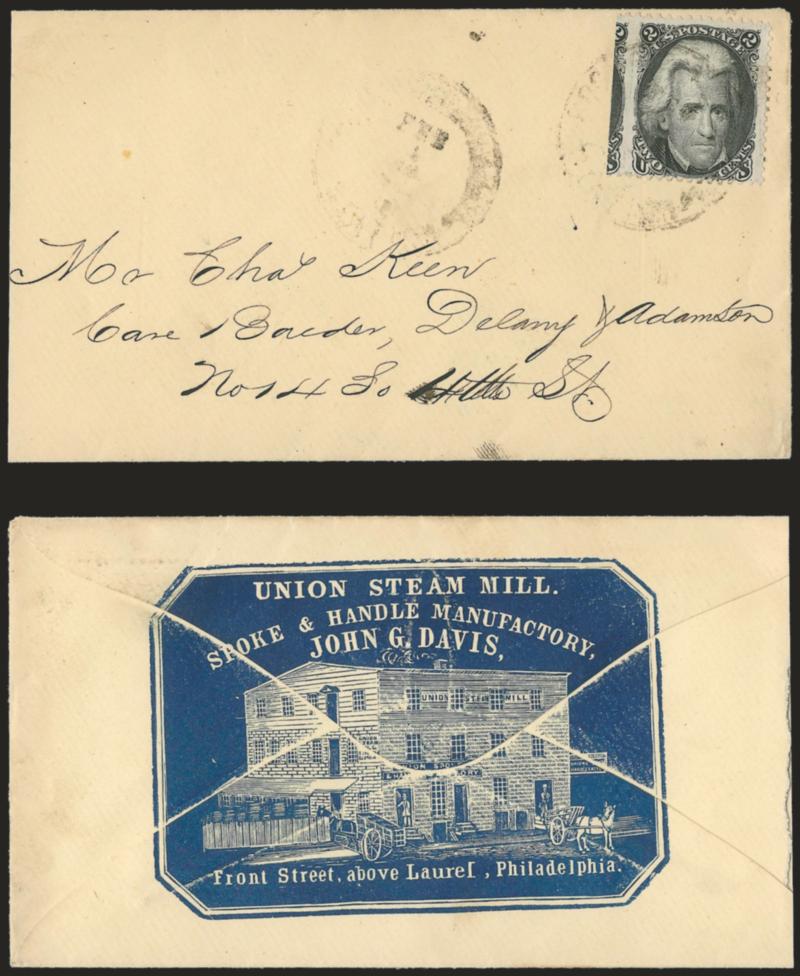 U.S. POSTAGE
2 2
TWO CENTS
U S
FEB
Mr Chas Keen
Care Baeder, Delany & Adamson
No 14 So 4th St.
UNION STEAM MILL.
SPOKE & HANDLE MANUFACTORY,
JOHN G. DAVIS,
UNION STEAM MILL
Front Street, above Laurel, Philadelphia.